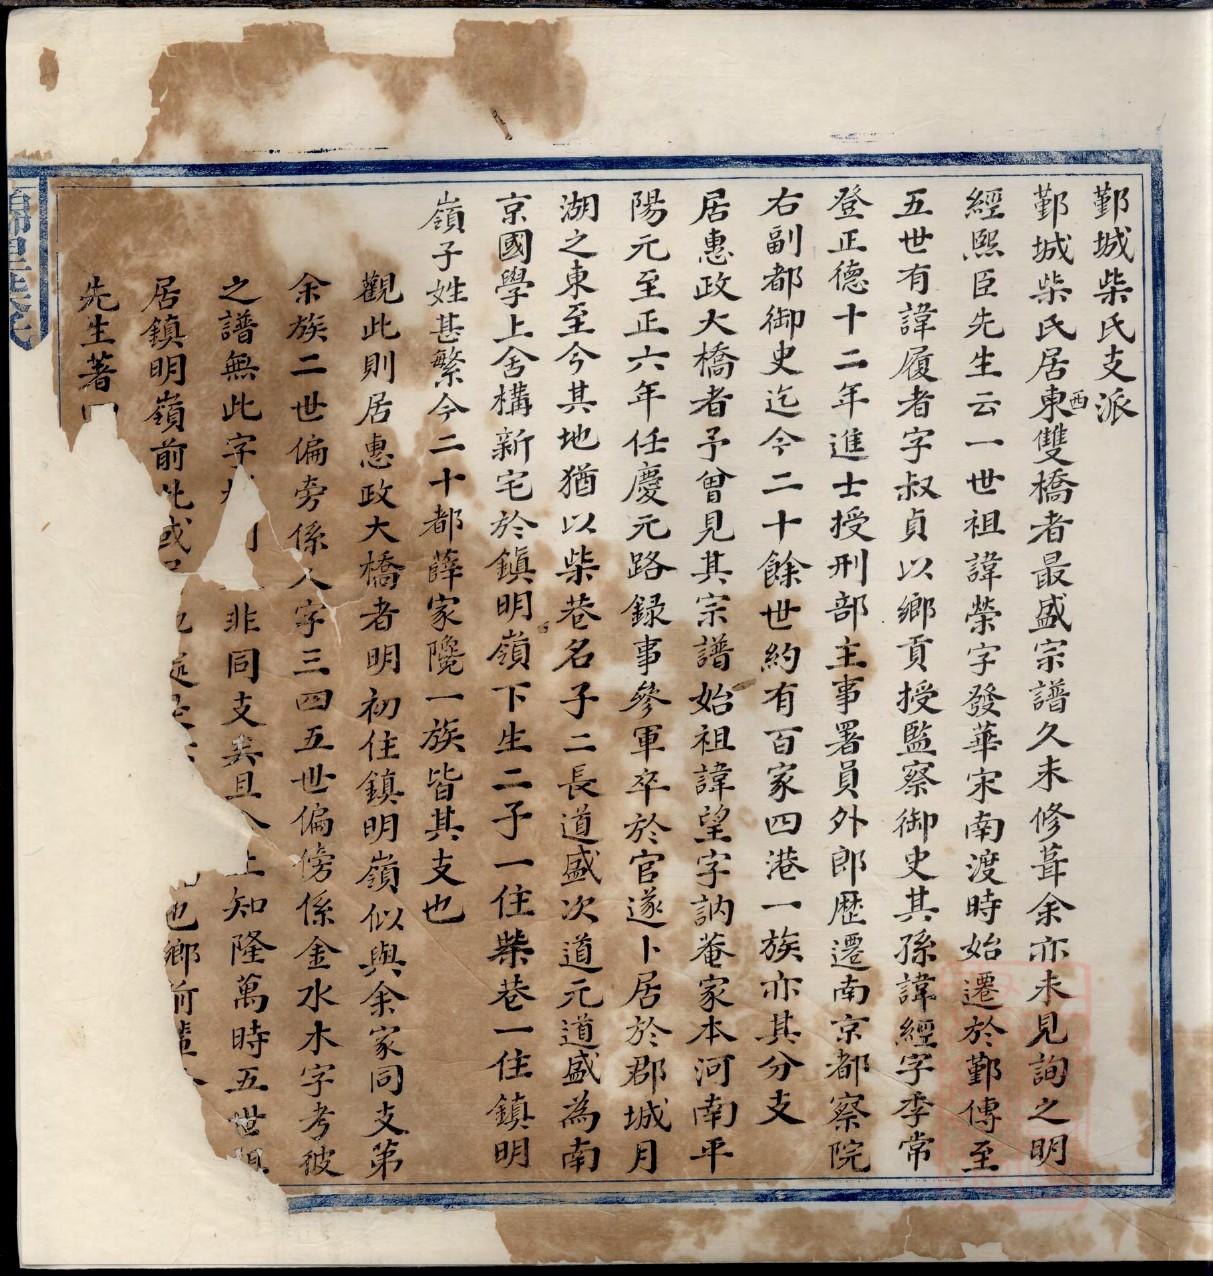 鄞城柴氏支派
鄞城柴氏居東西雙橋者最盛宗譜久未修葺余亦未見詢之明
經熙臣先生云一世祖諱榮字發華宋南渡時始遷於鄞傳至
五世有諱履者字叔貞以鄉貢授監察御史其孫諱經字季常
登正德十二年進士授刑部主事署員外郎歷遷南京都察院
右副都御史迄今二十餘世約有百家四港一族亦其分支
居惠政大橋者予曾見其宗譜始祖諱望字訥菴家本河南平
陽元至正六年任慶元路録事參軍卒於官遂卜居於郡城月
湖之東至今其地猶以柴巷名子二長道盛次道元道盛為南
京國學上舍構新宅於鎮明嶺下生二子一住柴巷一住鎮明
嶺子姓甚繁今二十都薛家隑一族皆其支也
觀此則居惠政大橋者明初住鎮明嶺似與余家同支第
余族二世偏旁係人字三四五世偏傍係金水木字考彼
之譜無此字非同支矣且知隆萬時五世
居鎮明嶺前此或也也鄉前
先生著